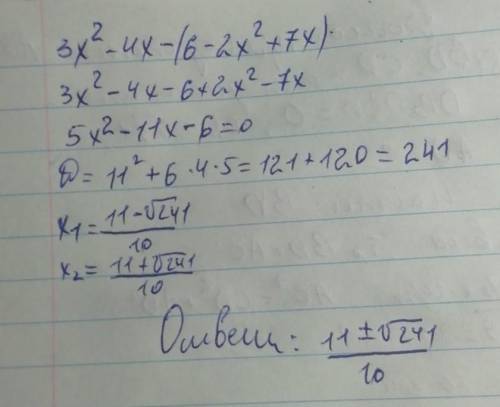 3x² - 4x - (6 - 2x² + 7x).
3x² - 4x - 6 + 2x² - 7x
5x² - 11x - 6 = 0
D = 11² + 6 · 4 · 5 = 121 + 120 = 241
x1 = (11 - √241)/10
x2 = (11 + √241)/10
Ответ: (11 ± √241)/10